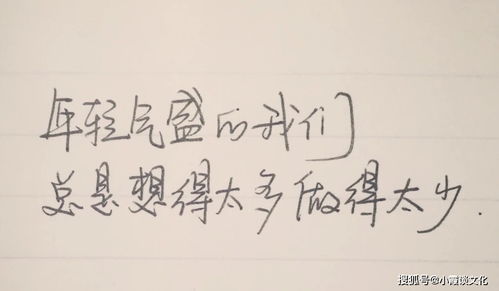 年轻气盛的我们
总是想得太多做得太少.
搜狐号@小霞谈文化